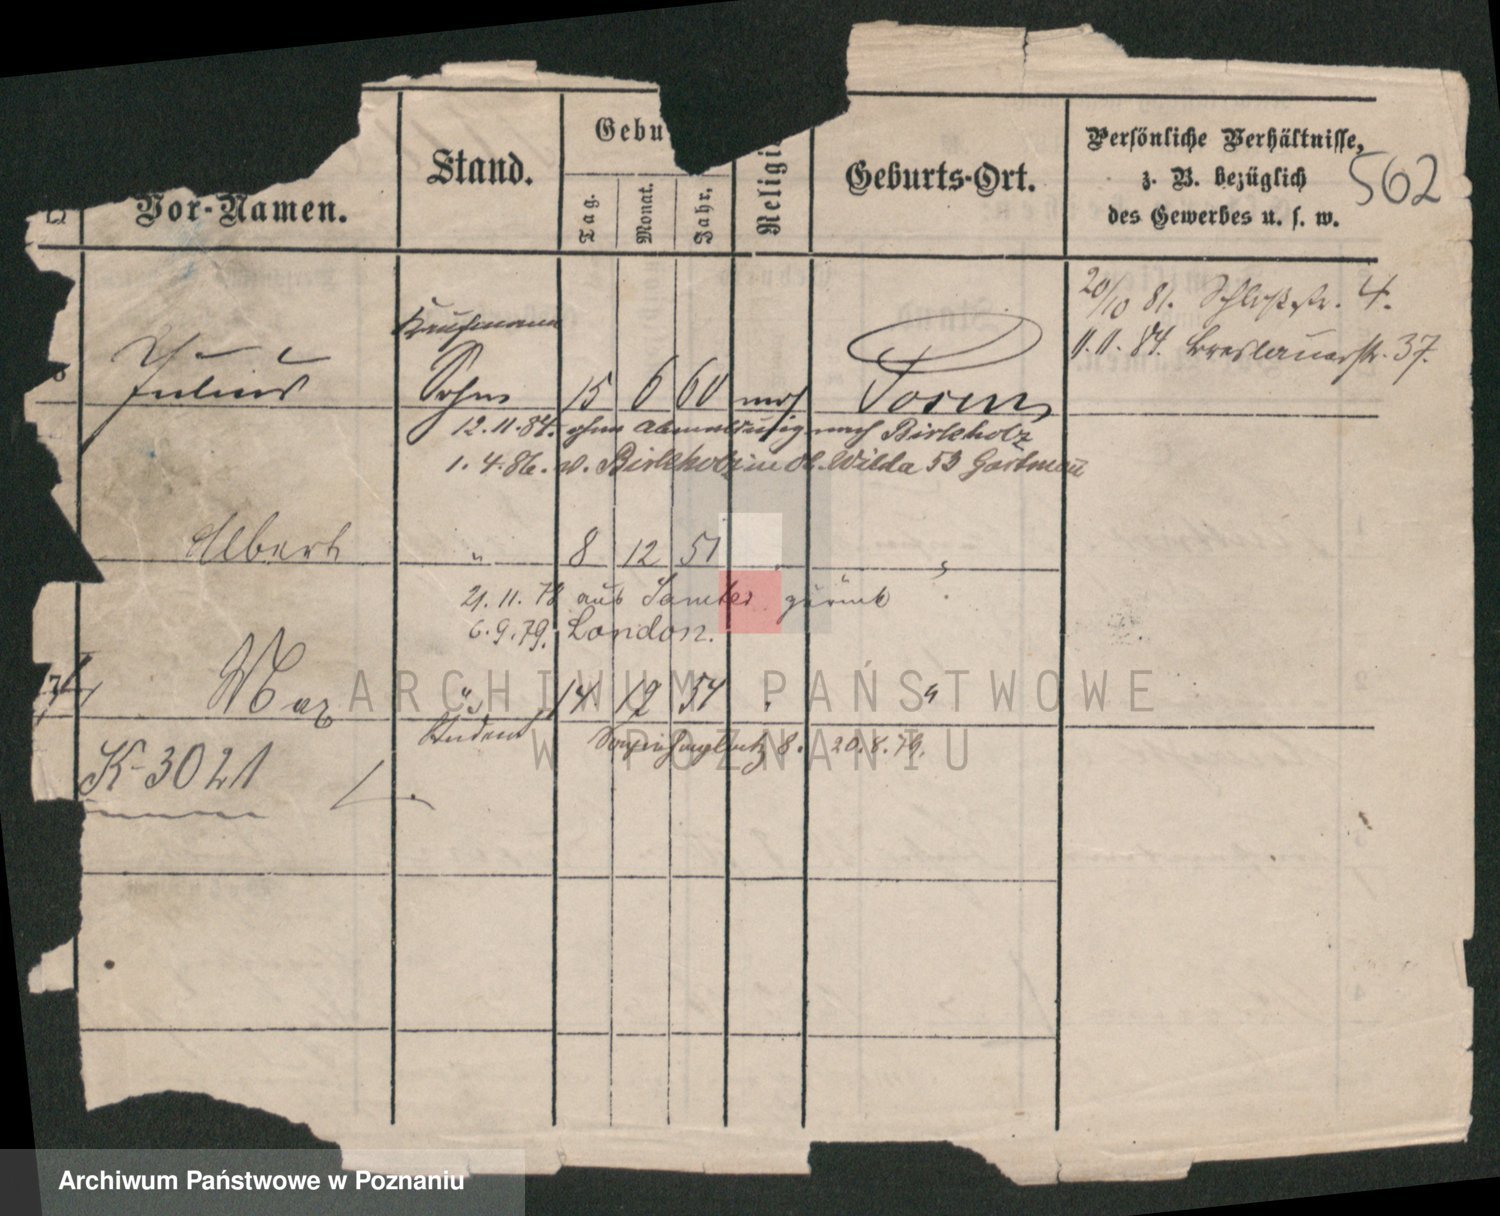 Vor-Namen.
Stand.
Gebu
Tag.
Monat.
Jahr.
Religi
Geburts-Ort.
Persönliche Verhältnisse,
z. B. bezüglich
des Gewerbes u. s. w.
562
20/10 81. Schloßstr. 4.
11.11.84. Breslauerstr. 37.
Kaufmann
Julius Sohn 15 6 60 mos Posen
12.11.84. ohne Abmeldung nach Birkholz
1.4.86. v. Birkholz in Wilda 53 Gartmann
Albert " 8 12 51 "
21.11.78 aus Samter zurück
6.9.79. London.
Max " 14 12 54 "
Student 8. 20.8.79.
K-3021
ARCHIWUM PAŃSTWOWE
W POZNANIU
Archiwum Państwowe w Poznaniu